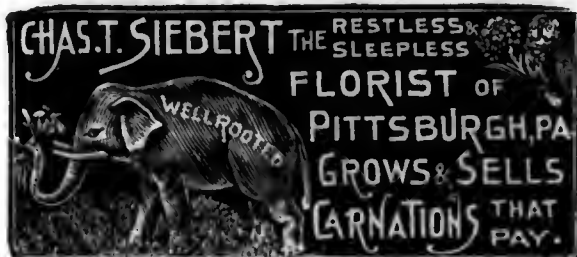 CHAS. T. SIEBERT THE RESTLESS & SLEEPLESS
FLORIST OF
PITTSBURGH, PA
GROWS & SELLS
CARNATIONS THAT PAY.
WELL ROOTED